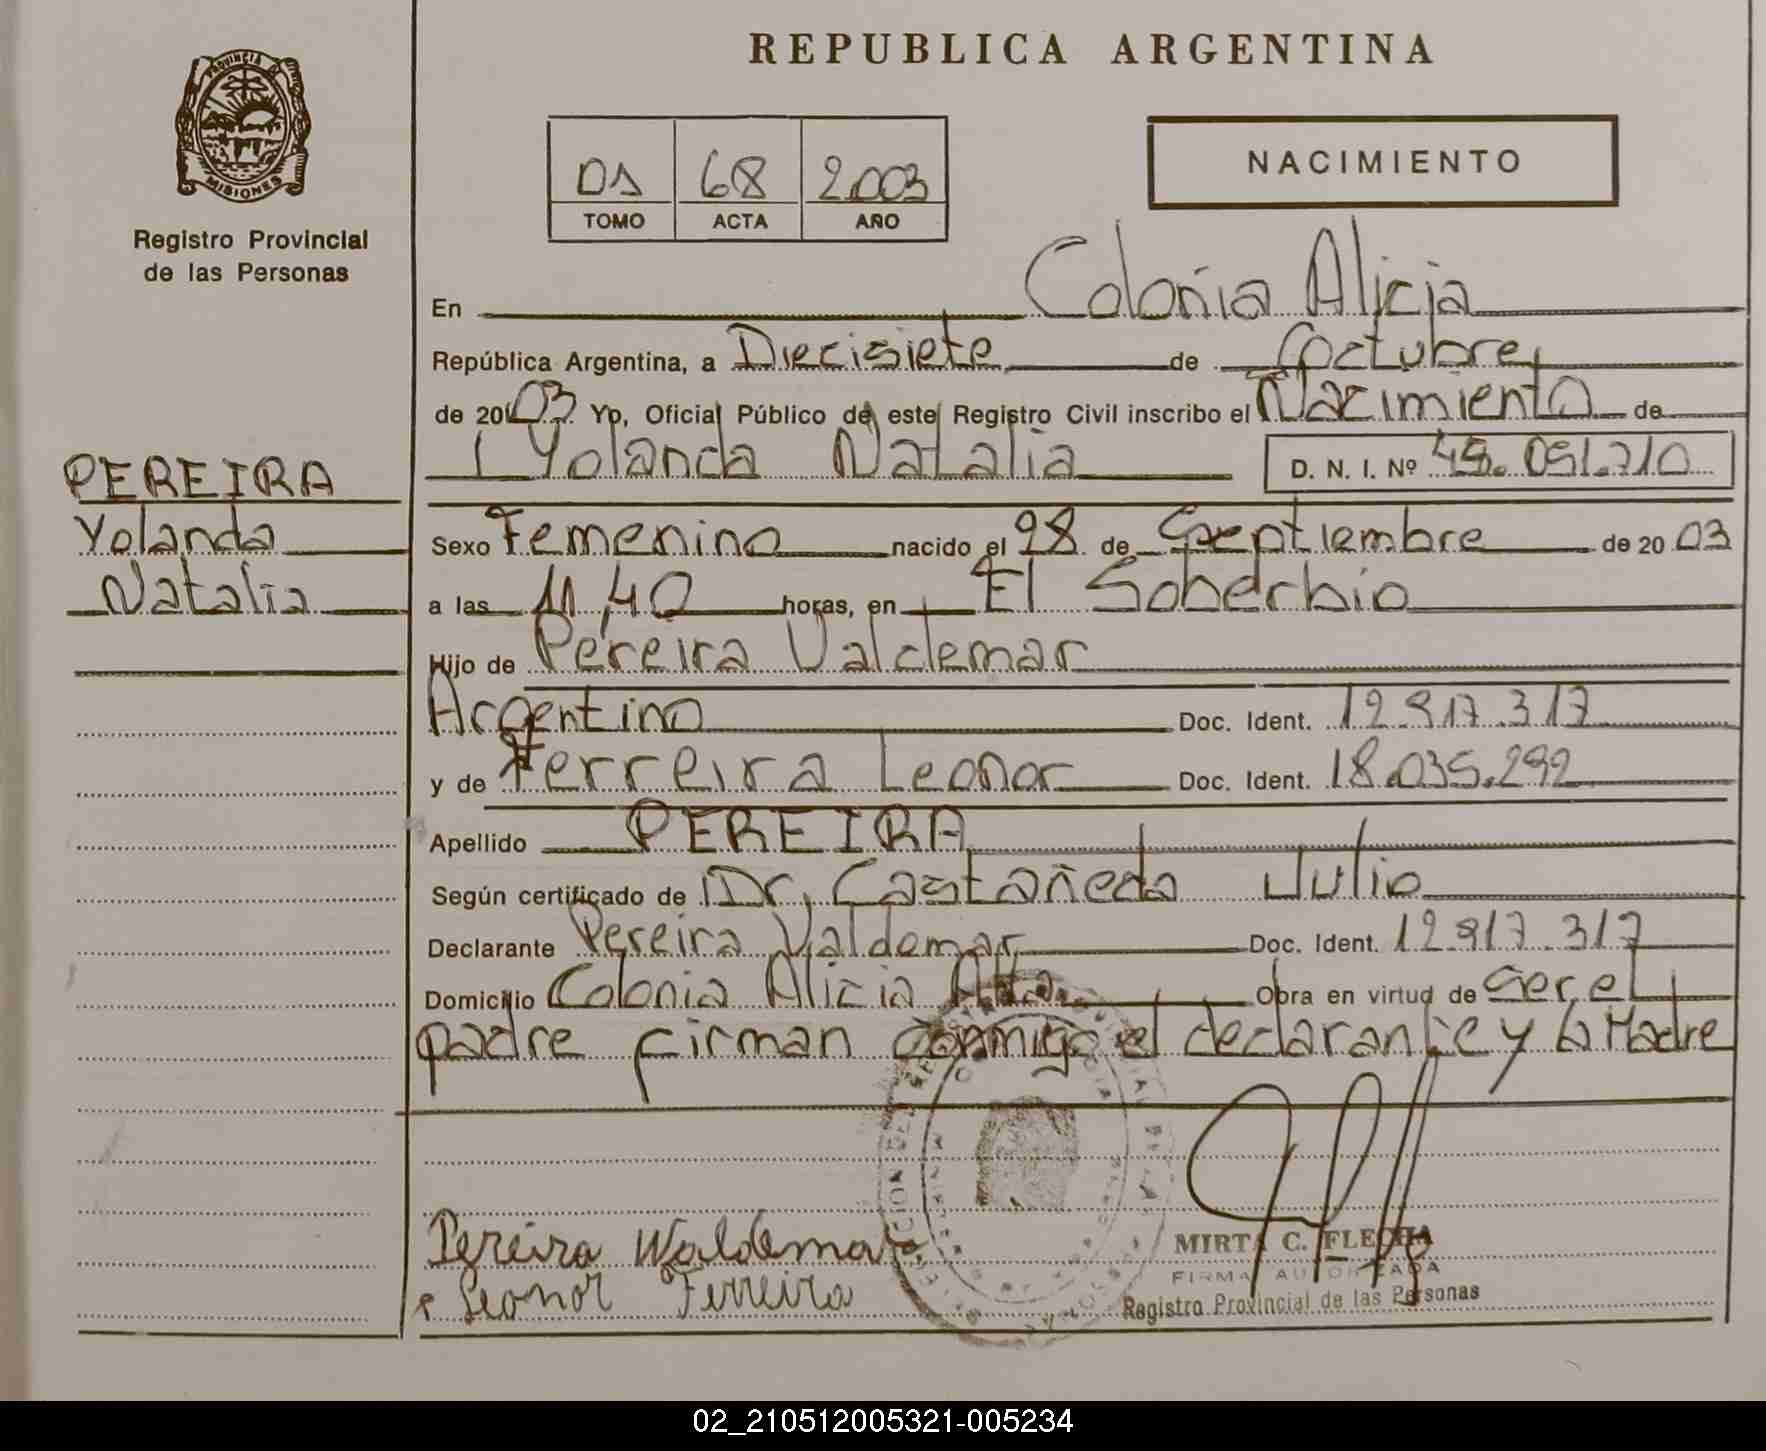 REPUBLICA ARGENTINA
PROVINCIA DE
MISIONES
Registro Provincial
de las Personas
01 68 2.003
TOMO ACTA AÑO
NACIMIENTO
En Colonia Alicia
República Argentina, a Diecisiete de Octubre
de 2003 Yo, Oficial Público de este Registro Civil inscribo el Nacimiento de
Yolanda Natalia
D. N. I. Nº 45.091.710
PEREIRA
Yolanda
Natalia
Sexo Femenino nacido el 28 de Septiembre de 2003
a las 11,40 horas, en El Soberbio
Hijo de Pereira Valdemar
Argentino Doc. Ident. 12.917.317
y de Ferreira Leonor Doc. Ident. 18.035.292
Apellido PEREIRA
Según certificado de Dr, Castañeda Julio
Declarante Pereira Valdemar Doc. Ident. 12.917.317
Domicilio Colonia Alicia Alta Obra en virtud de ser el
padre firman conmigo el declarante y la Madre
Pereira Waldemar
Leonor Ferreira
MIRTA C. FLECHA
FIRMA AUTORIZADA
Registro Provincial de las Personas
02_210512005321-005234